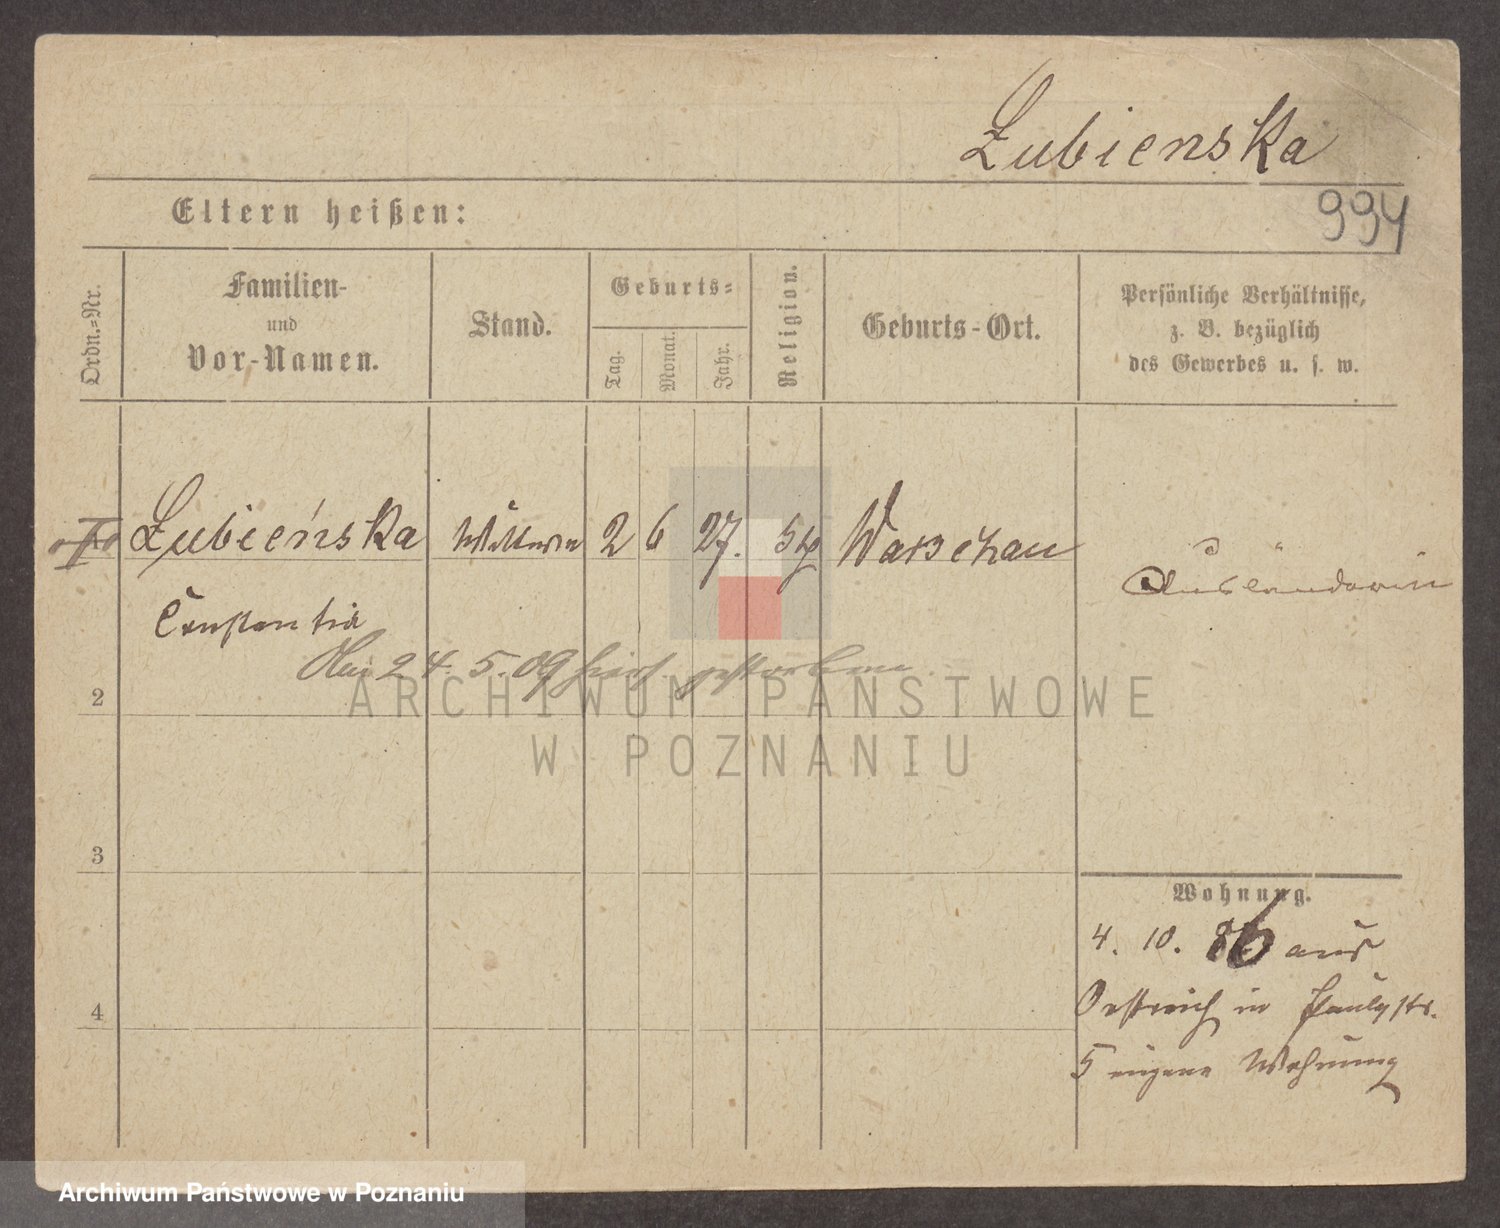 Łubienska
994
Eltern heißen:
Ordn.-Nr.
Familien-
und
Vor-Namen.
Stand.
Geburts-
Tag.
Monat.
Jahr.
Religion.
Geburts-Ort.
Persönliche Verhältnisse,
z. B. bezüglich
des Gewerbes u. s. w.
Łubieńska Wittwe 2 6 27. Warschau
Constantia
Ausländerin
Am 24.5.09 hier gestorben.
2
ARCHIWUM PAŃSTWOWE
W POZNANIU
3
Wohnung.
4. 10. 86 aus
Oestreich in Paulystr.
5 eigene Wohnung
4
Archiwum Państwowe w Poznaniu